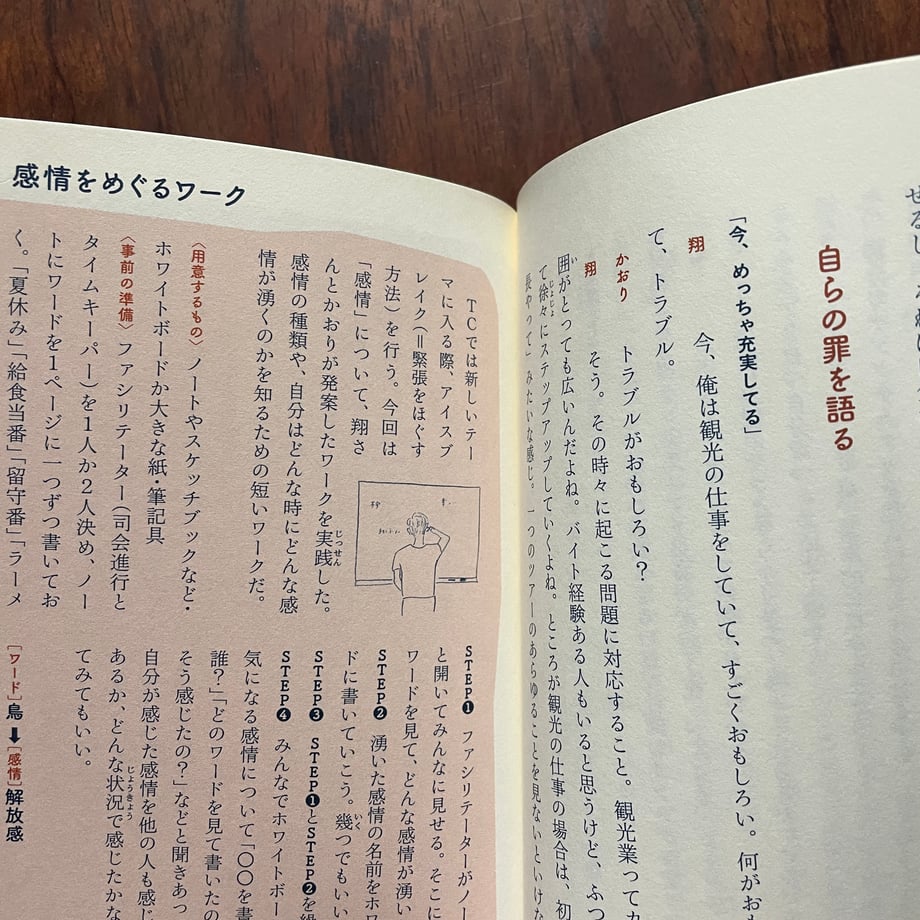 自らの罪を語る
「今、めっちゃ充実してる」
翔　今、俺は観光の仕事をしていて、すごくおもしろい。何がおも
て、トラブル。
かおり　トラブルがおもしろい?
翔　そう。その時々に起こる問題に対応すること。観光業って
囲がとっても広いんだよね。バイト経験ある人もいると思うけど、ふつ
て徐々にステップアップしていくよね。ところが観光の仕事の場合は、初
長やって」みたいな感じ。一つのツアーのあらゆることを見ないといけな
感情をめぐるワーク
TCでは新しいテー
マに入る際、アイスブ
レイク(=緊張をほぐす
方法)を行う。今回は
「感情」について、翔さ
んとかおりが発案したワークを実践した。
感情の種類や、自分はどんな時にどんな感
情が湧くのかを知るための短いワークだ。
〈用意するもの〉ノートやスケッチブックなど・
ホワイトボードか大きな紙・筆記具
〈事前の準備〉ファシリテーター(司会進行と
タイムキーパー)を1人か2人決め、ノー
トにワードを1ページに一つずつ書いてお
く。「夏休み」「給食当番」「留守番」「ラーメ
STEP❶ ファシリテーターがノー
と開いてみんなに見せる。そこに
ワードを見て、どんな感情が湧い
STEP❷ 湧いた感情の名前をホワ
ドに書いていこう。幾つでもいい
STEP❸ STEP❶とSTEP❷を繰
STEP❹ みんなでホワイトボー
気になる感情について「〇〇を書
誰?」「どのワードを見て書いたの
そう感じたの?」などと聞きあっ
自分が感じた感情を他の人も感じ
あるか、どんな状況で感じたかな
てみてもいい。
[ワード]鳥➡[感情]解放感